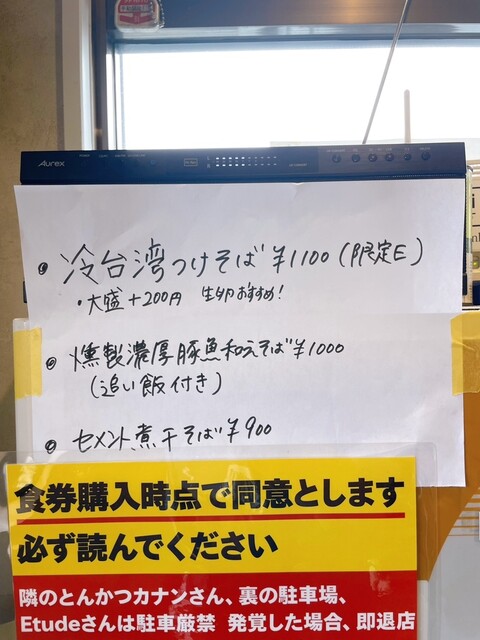 Aurex
冷台湾つけそば ¥1100(限定E)
・大盛+200円 生卵おすすめ!
燻製濃厚豚魚和えそば ¥1000
(追い飯付き)
セメント煮干そば ¥900
食券購入時点で同意とします
必ず読んでください
隣のとんかつカナンさん、裏の駐車場、
Etudeさんは駐車厳禁 発覚した場合、即退店